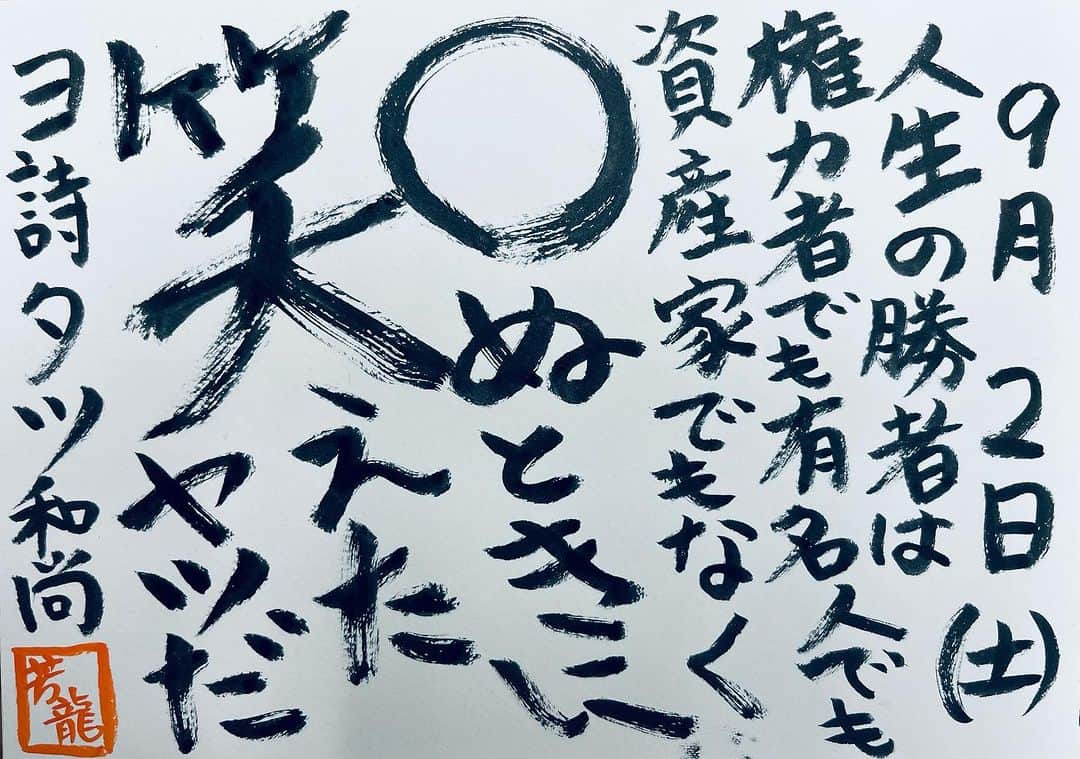 9月2日(土)
人生の勝者は
権力者でも有名人でも
資産家でもなく
〇ぬときに
笑えた
ヤツだ
ヨ詩タツ和尚
芳龍